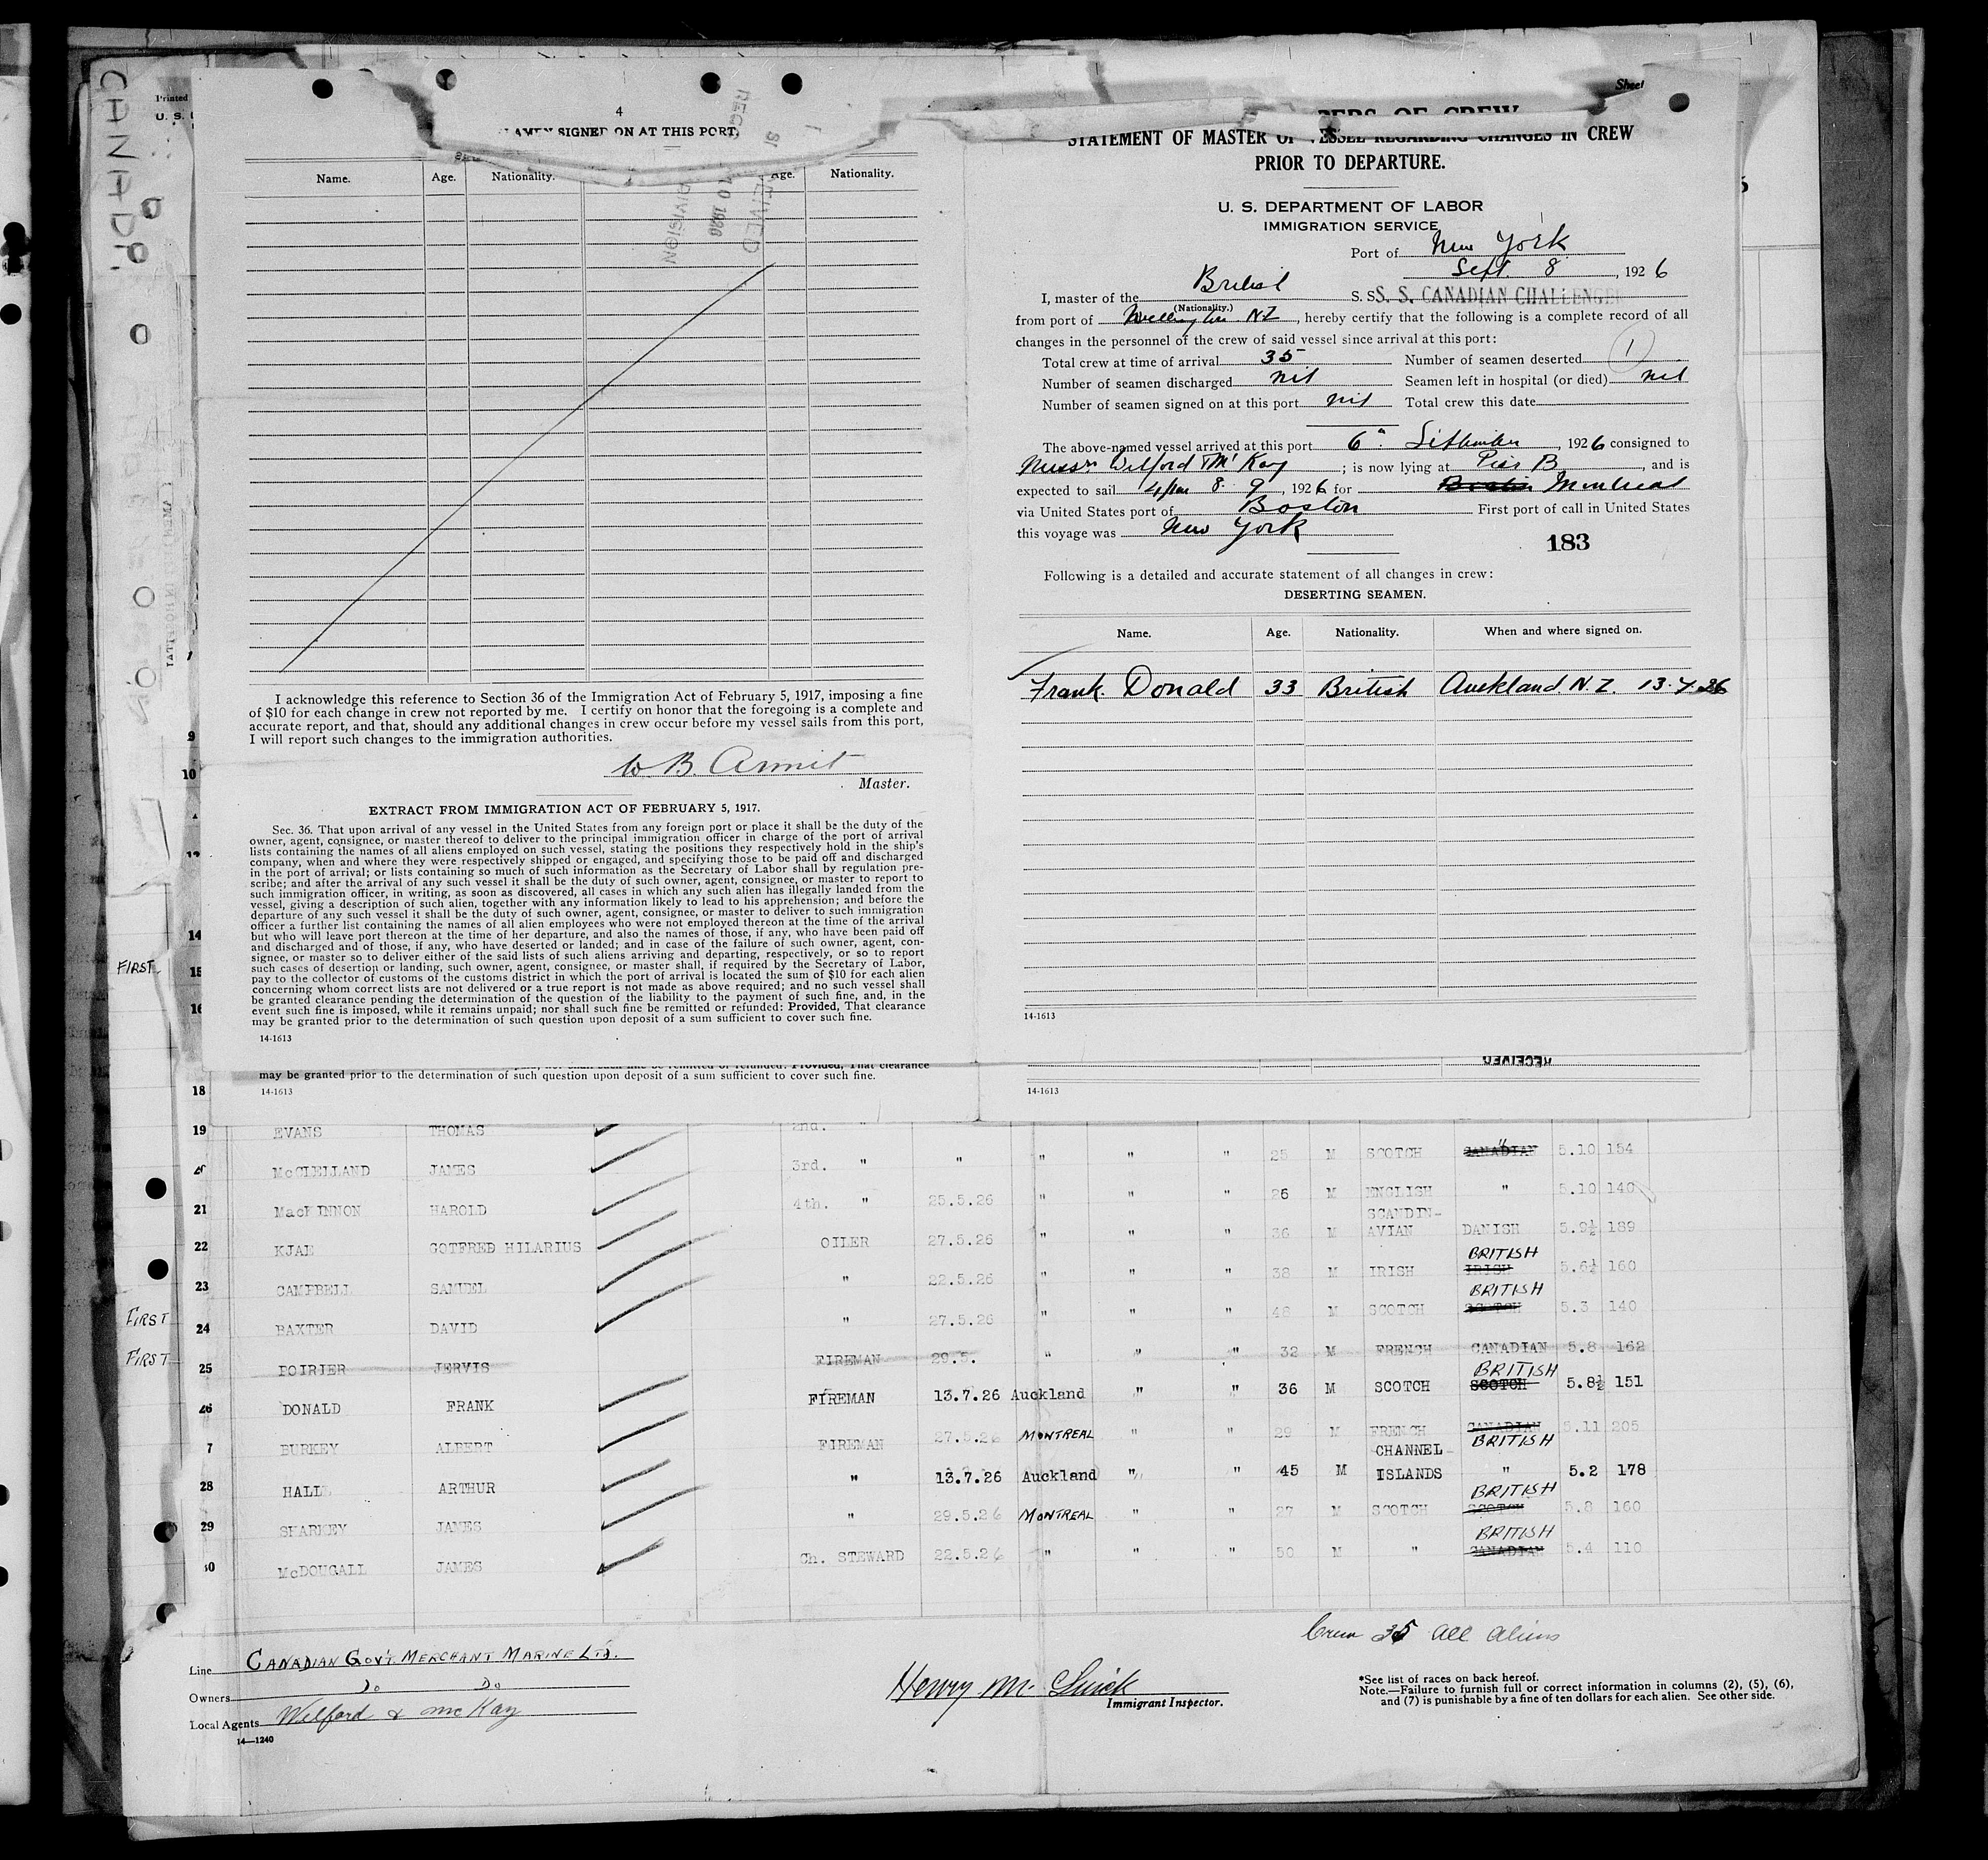 CANADA.
Printed
U. S.
4
SIGNED ON AT THIS PORT.
Name. Age. Nationality. Age. Nationality.
RECEIVED
DIVISION
I acknowledge this reference to Section 36 of the Immigration Act of February 5, 1917, imposing a fine
of $10 for each change in crew not reported by me. I certify on honor that the foregoing is a complete and
accurate report, and that, should any additional changes in crew occur before my vessel sails from this port,
I will report such changes to the immigration authorities.
W. B. Armit
Master.
EXTRACT FROM IMMIGRATION ACT OF FEBRUARY 5, 1917.
Sec. 36. That upon arrival of any vessel in the United States from any foreign port or place it shall be the duty of the
owner, agent, consignee, or master thereof to deliver to the principal immigration officer in charge of the port of arrival
lists containing the names of all aliens employed on such vessel, stating the positions they respectively hold in the ship's
company, when and where they were respectively shipped or engaged, and specifying those to be paid off and discharged
in the port of arrival; or lists containing so much of such information as the Secretary of Labor shall by regulation pre-
scribe; and after the arrival of any such vessel it shall be the duty of such owner, agent, consignee, or master to report to
such immigration officer, in writing, as soon as discovered, all cases in which any such alien has illegally landed from the
vessel, giving a description of such alien, together with any information likely to lead to his apprehension; and before the
departure of any such vessel it shall be the duty of such owner, agent, consignee, or master to deliver to such immigration
officer a further list containing the names of all alien employees who were not employed thereon at the time of the arrival
but who will leave port thereon at the time of her departure, and also the names of those, if any, who have been paid off
and discharged and of those, if any, who have deserted or landed; and in case of the failure of such owner, agent, con-
signee, or master so to deliver either of the said lists of such aliens arriving and departing, respectively, or so to report
such cases of desertion or landing, such owner, agent, consignee, or master shall, if required by the Secretary of Labor,
pay to the collector of customs of the customs district in which the port of arrival is located the sum of $10 for each alien
concerning whom correct lists are not delivered or a true report is not made as above required; and no such vessel shall
be granted clearance pending the determination of the question of the liability to the payment of such fine, and, in the
event such fine is imposed, while it remains unpaid; nor shall such fine be remitted or refunded: Provided, That clearance
may be granted prior to the determination of such question upon deposit of a sum sufficient to cover such fine.
14-1613
Sheet
STATEMENT OF MASTER OF VESSEL REGARDING CHANGES IN CREW
PRIOR TO DEPARTURE.
U. S. DEPARTMENT OF LABOR
IMMIGRATION SERVICE
Port of New York
Sept. 8, 1926
I, master of the British S. S. S. S. CANADIAN CHALLENGER
(Nationality.)
from port of Wellington NZ, hereby certify that the following is a complete record of all
changes in the personnel of the crew of said vessel since arrival at this port:
Total crew at time of arrival 35 Number of seamen deserted 1
Number of seamen discharged nil Seamen left in hospital (or died) nil
Number of seamen signed on at this port nil Total crew this date
The above-named vessel arrived at this port 6" September, 1926 consigned to
Messrs Welford & McKay; is now lying at Pier B, and is
expected to sail 4 pm 8. 9, 1926 for Boston Montreal
via United States port of Boston First port of call in United States
this voyage was New York
183
Following is a detailed and accurate statement of all changes in crew:
DESERTING SEAMEN.
Name. Age. Nationality. When and where signed on.
Frank Donald 33 British Auckland N.Z. 13.7.26
14-1613
may be granted prior to the determination of such question upon deposit of a sum sufficient to cover such fine.
14-1613
RECEIVED
14-1613
9
10
14
FIRST 15
16
18
19 EVANS THOMAS 2nd. "
20 McCLELLAND JAMES 3rd. " " " " " 25 M SCOTCH CANADIAN " 5.10 154
21 MacKINNON HAROLD 4th. " 25.5.26 " " " 26 M ENGLISH " 5.10 140
22 KJAE GOTFRED HILARIUS OILER 27.5.26 " " " 36 M SCANDIN-AVIAN DANISH 5.9½ 189
23 CAMPBELL SAMUEL " 22.5.26 " " " 38 M IRISH IRISH BRITISH 5.6½ 160
FIRST 24 BAXTER DAVID " 27.5.26 " " " 48 M SCOTCH SCOTCH BRITISH 5.3 140
FIRST 25 POIRIER JERVIS FIREMAN 29.5. " " " 32 M FRENCH CANADIAN 5.8 162
26 DONALD FRANK FIREMAN 13.7.26 Auckland " " 36 M SCOTCH SCOTCH BRITISH 5.8½ 151
7 BURKEY ALBERT FIREMAN 27.5.26 MONTREAL " " 29 M FRENCH CANADIAN BRITISH 5.11 205
28 HALL ARTHUR " 13.7.26 Auckland " " 45 M CHANNEL ISLANDS " 5.2 178
29 SHARKEY JAMES " 29.5.26 MONTREAL " " 27 M SCOTCH SCOTCH BRITISH 5.8 160
30 McDOUGALL JAMES Ch. STEWARD 22.5.26 " " " 50 M " CANADIAN BRITISH 5.4 110
Crew 35 All Aliens
Line CANADIAN GOV'T. MERCHANT MARINE LTD.
Owners Do Do
Local Agents Welford & McKay
14—1240
Immigrant Inspector.
*See list of races on back hereof.
Note.—Failure to furnish full or correct information in columns (2), (5), (6),
and (7) is punishable by a fine of ten dollars for each alien. See other side.